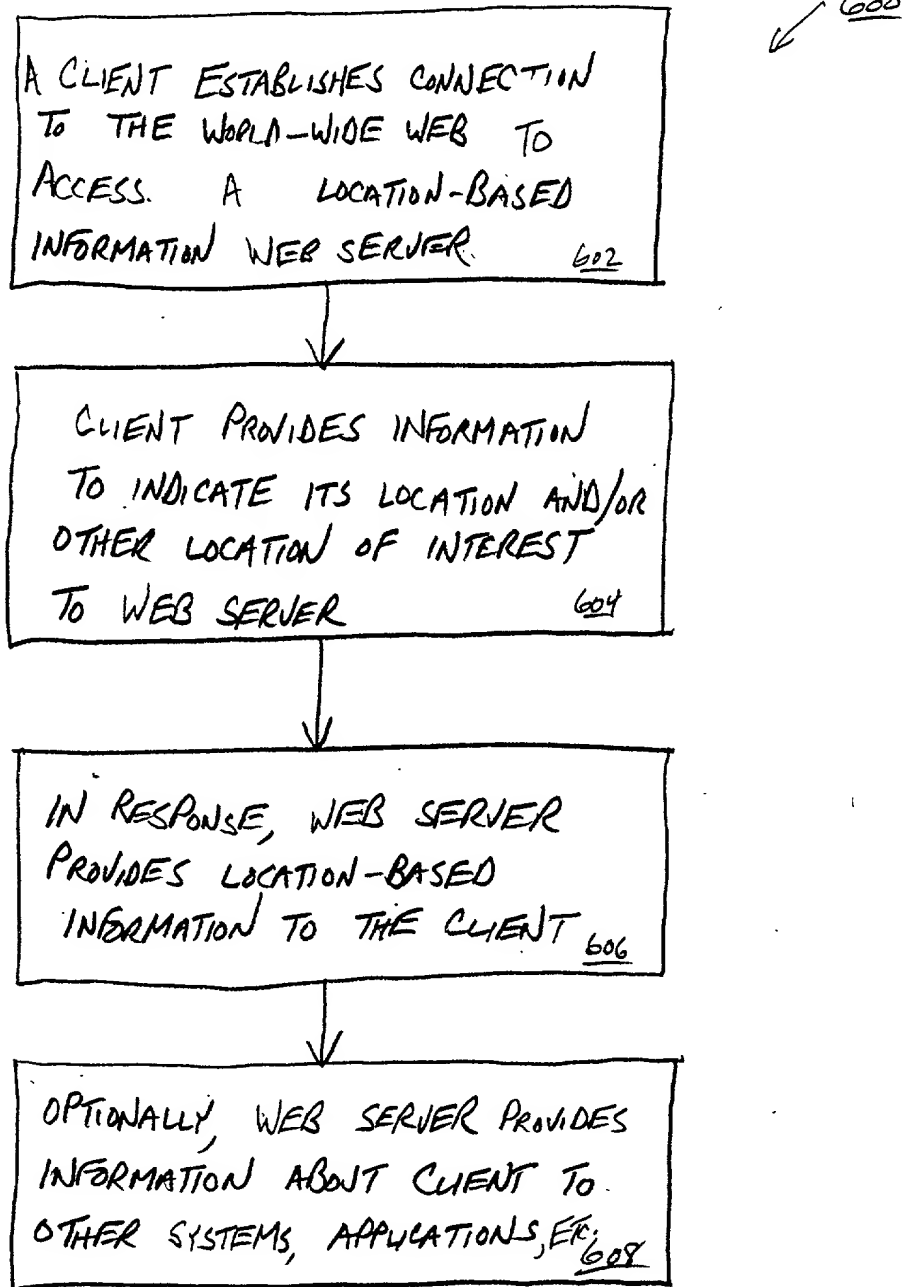 600
A CLIENT ESTABLISHES CONNECTION
TO THE WORLD-WIDE WEB TO
ACCESS. A LOCATION-BASED
INFORMATION WEB SERVER.
602
CLIENT PROVIDES INFORMATION
TO INDICATE ITS LOCATION AND/OR
OTHER LOCATION OF INTEREST
TO WEB SERVER
604
IN RESPONSE, WEB SERVER
PROVIDES LOCATION-BASED
INFORMATION TO THE CLIENT
606
OPTIONALLY, WEB SERVER PROVIDES
INFORMATION ABOUT CLIENT TO
OTHER SYSTEMS, APPLICATIONS, ETC.
608